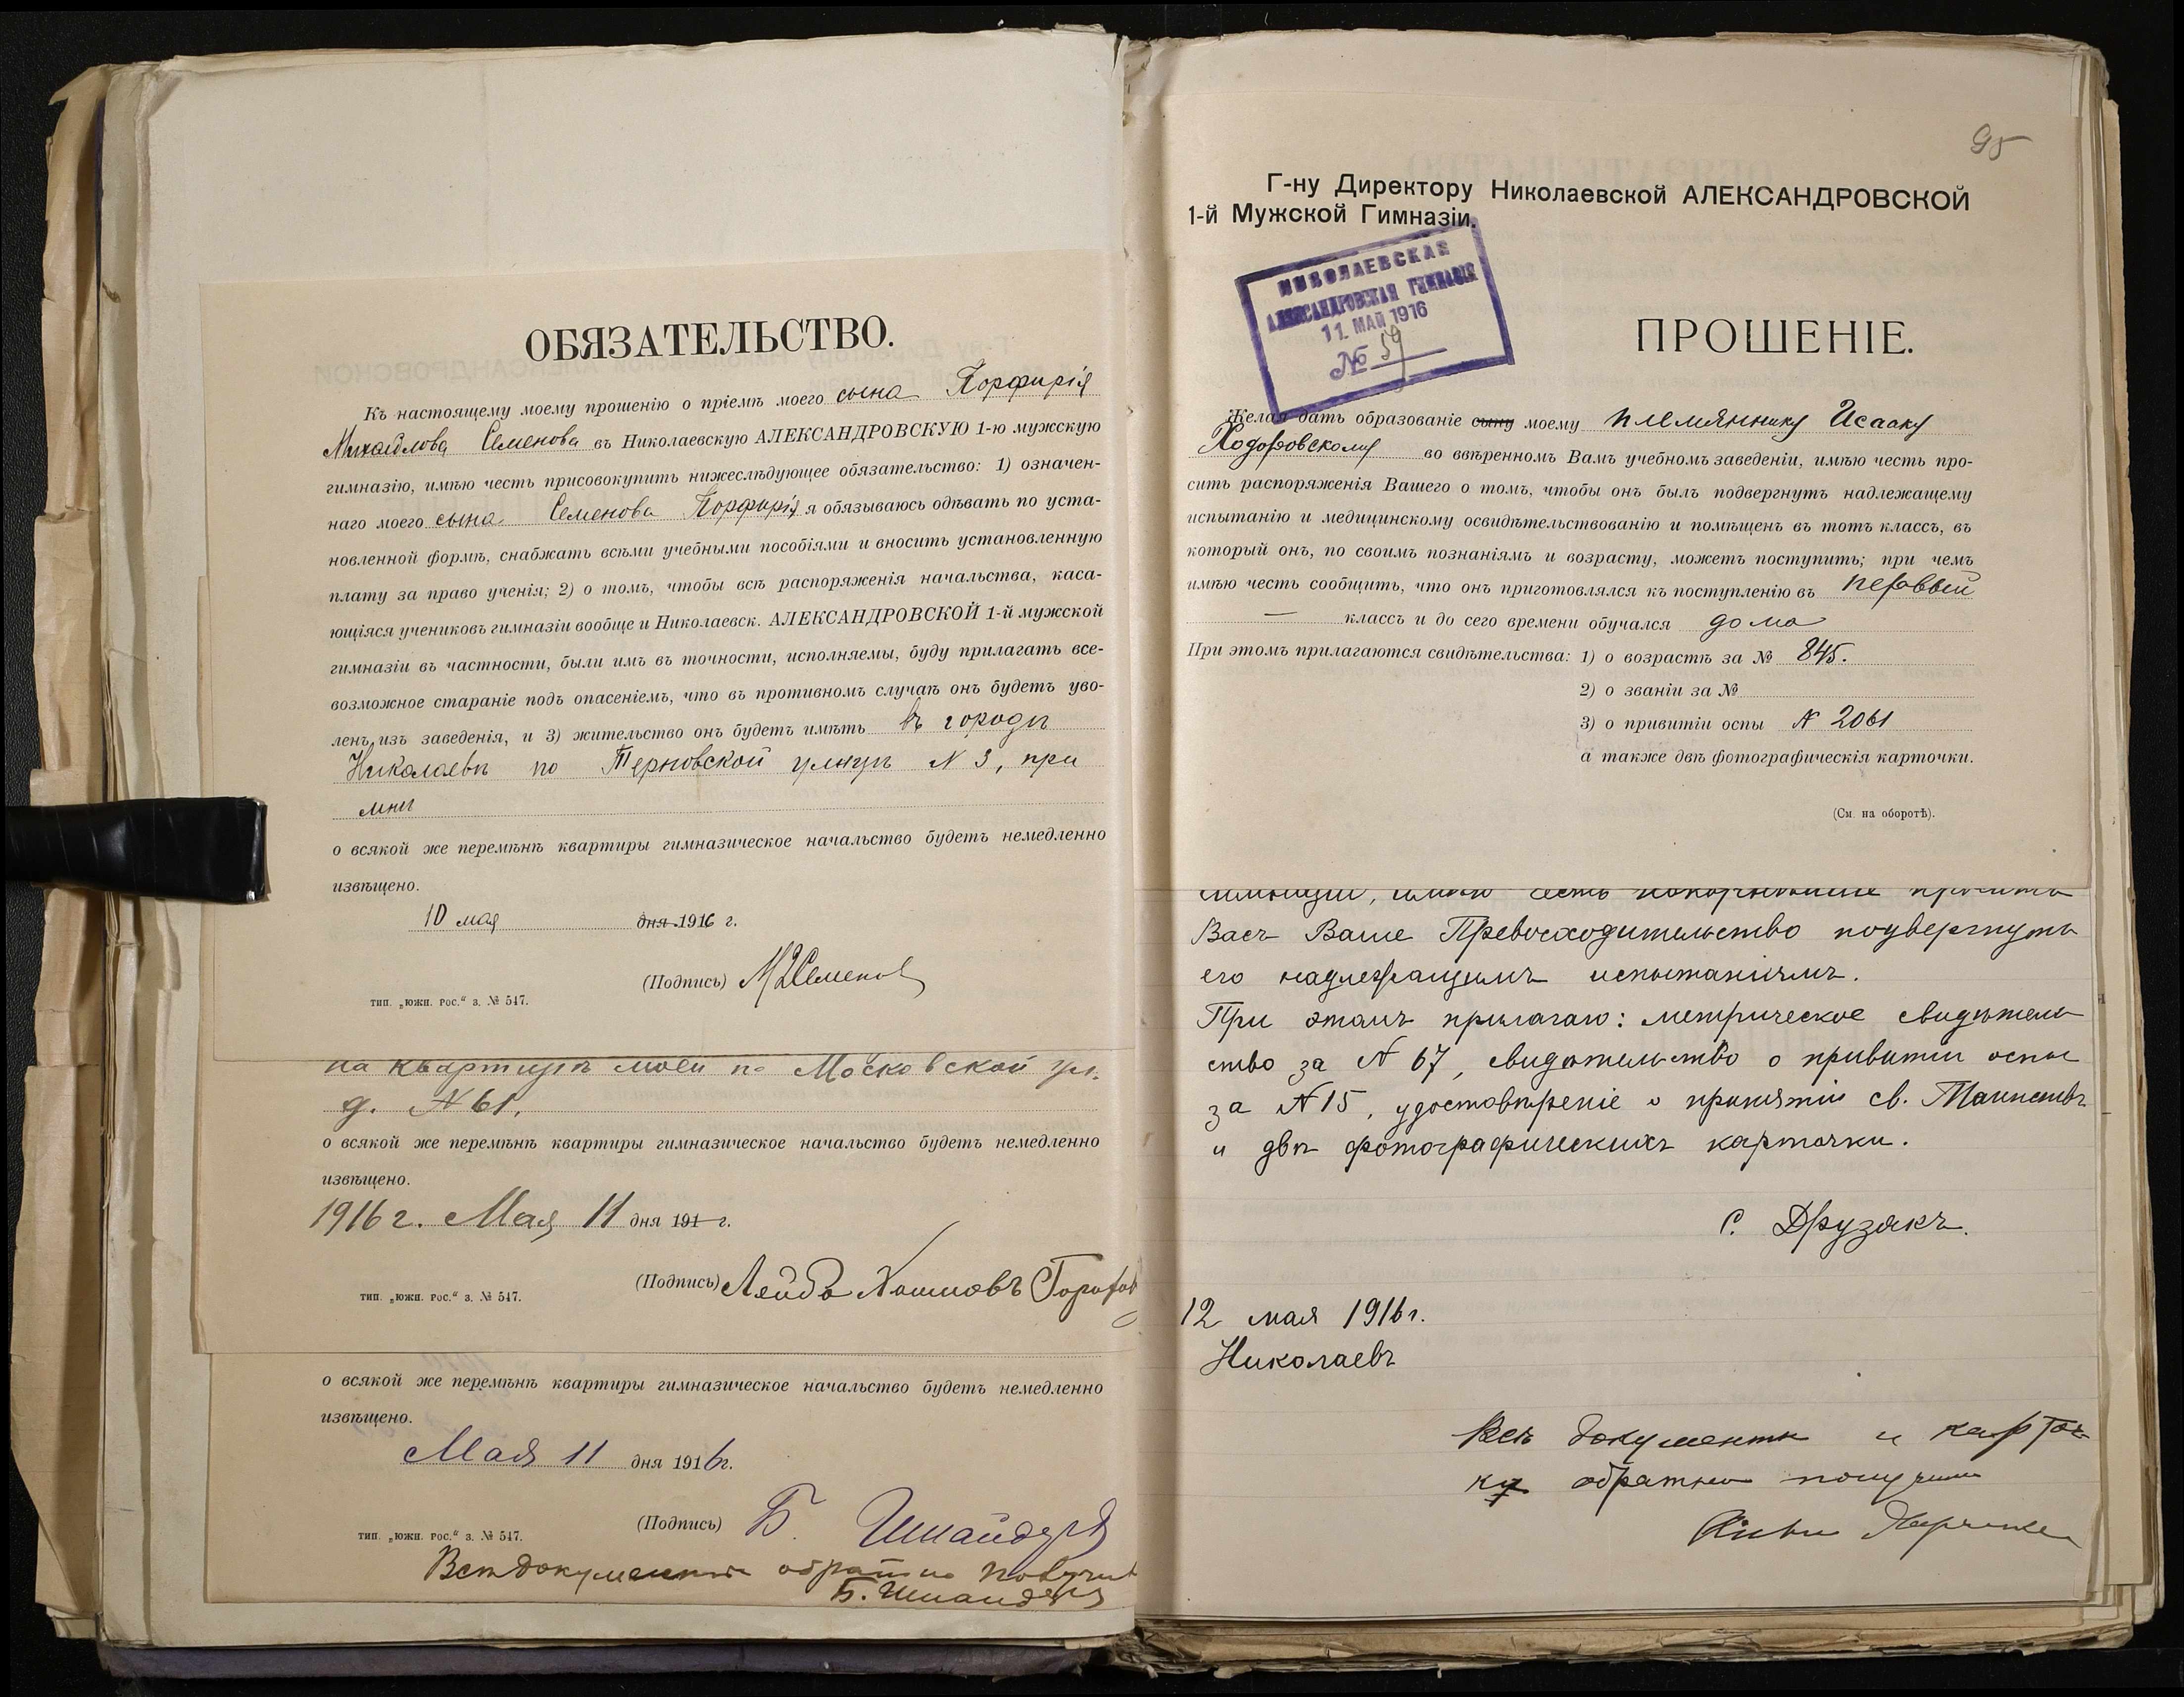 ОБЯЗАТЕЛЬСТВО.
Къ настоящему моему прошенію о пріемѣ моего сына Порфирія
Михайлова Семенова въ Николаевскую АЛЕКСАНДРОВСКУЮ 1-ю мужскую
гимназію, имѣю честь присовокупить нижеслѣдующее обязательство: 1) означен-
наго моего сына Семенова Порфирія я обязываюсь одѣвать по уста-
новленной формѣ, снабжать всѣми учебными пособіями и вносить установленную
плату за право ученія; 2) о томъ, чтобы всѣ распоряженія начальства, каса-
ющіяся учениковъ гимназіи вообще и Николаевск. АЛЕКСАНДРОВСКОЙ 1-й мужской
гимназіи въ частности, были имъ въ точности, исполняемы, буду прилагать все-
возможное стараніе подъ опасеніемъ, что въ противномъ случаѣ онъ будетъ уво-
ленъ изъ заведенія, и 3) жительство онъ будетъ имѣть въ городѣ
Николаевѣ по Терновской улицѣ N 3, при
мнѣ
о всякой же перемѣнѣ квартиры гимназическое начальство будетъ немедленно
извѣщено.
10 мая дня 1916 г.
(Подпись) М Семенов
тип. „южн. рос.“ з. № 547.
на квартирѣ моей по Московской ул.
д. N 61.
о всякой же перемѣнѣ квартиры гимназическое начальство будетъ немедленно
извѣщено.
1916 г. Мая 11 дня 191 г.
(Подпись) Лейба Хаимовъ
тип. „южн. рос.“ з. № 547.
о всякой же перемѣнѣ квартиры гимназическое начальство будетъ немедленно
извѣщено.
Мая 11 дня 1916 г.
(Подпись) Б. Шнайдеръ
тип. „южн. рос.“ з. № 547.
Всѣ документы обратно получил
Б. Шнайдеръ
95
Г-ну Директору Николаевской АЛЕКСАНДРОВСКОЙ
1-й Мужской Гимназіи.
НИКОЛАЕВСКАЯ
АЛЕКСАНДРОВСКАЯ ГИМНАЗІЯ
11. МАЙ 1916
№ 59
ПРОШЕНІЕ.
Желая дать образованіе сыну моему племяннику Исааку
Ходоровскому во ввѣренномъ Вамъ учебномъ заведеніи, имѣю честь про-
сить распоряженія Вашего о томъ, чтобы онъ былъ подвергнутъ надлежащему
испытанію и медицинскому освидѣтельствованію и помѣщенъ въ тотъ классъ, въ
который онъ, по своимъ познаніямъ и возрасту, можетъ поступить; при чемъ
имѣю честь сообщить, что онъ приготовлялся къ поступленію въ первый
— классъ и до сего времени обучался дома
При этомъ прилагаются свидѣтельства: 1) о возрастѣ за № 845.
2) о званіи за №
3) о привитіи оспы N 2061
а также двѣ фотографическія карточки.
(См. на оборотѣ).
имѣю честь покорнѣйше просить
Васъ Ваше Превосходительство подвергнуть
его надлежащимъ испытаніямъ.
При этомъ прилагаю: метрическое свидѣтель
ство за N 67, свидѣтельство о привитіи оспы
за N 15, удостовѣреніе о принятіи св. Таинствъ
и двѣ фотографическихъ карточки.
С. Друзякъ.
12 мая 1916 г.
Николаевъ
Всѣ документы и карточ-
ки обратно получил